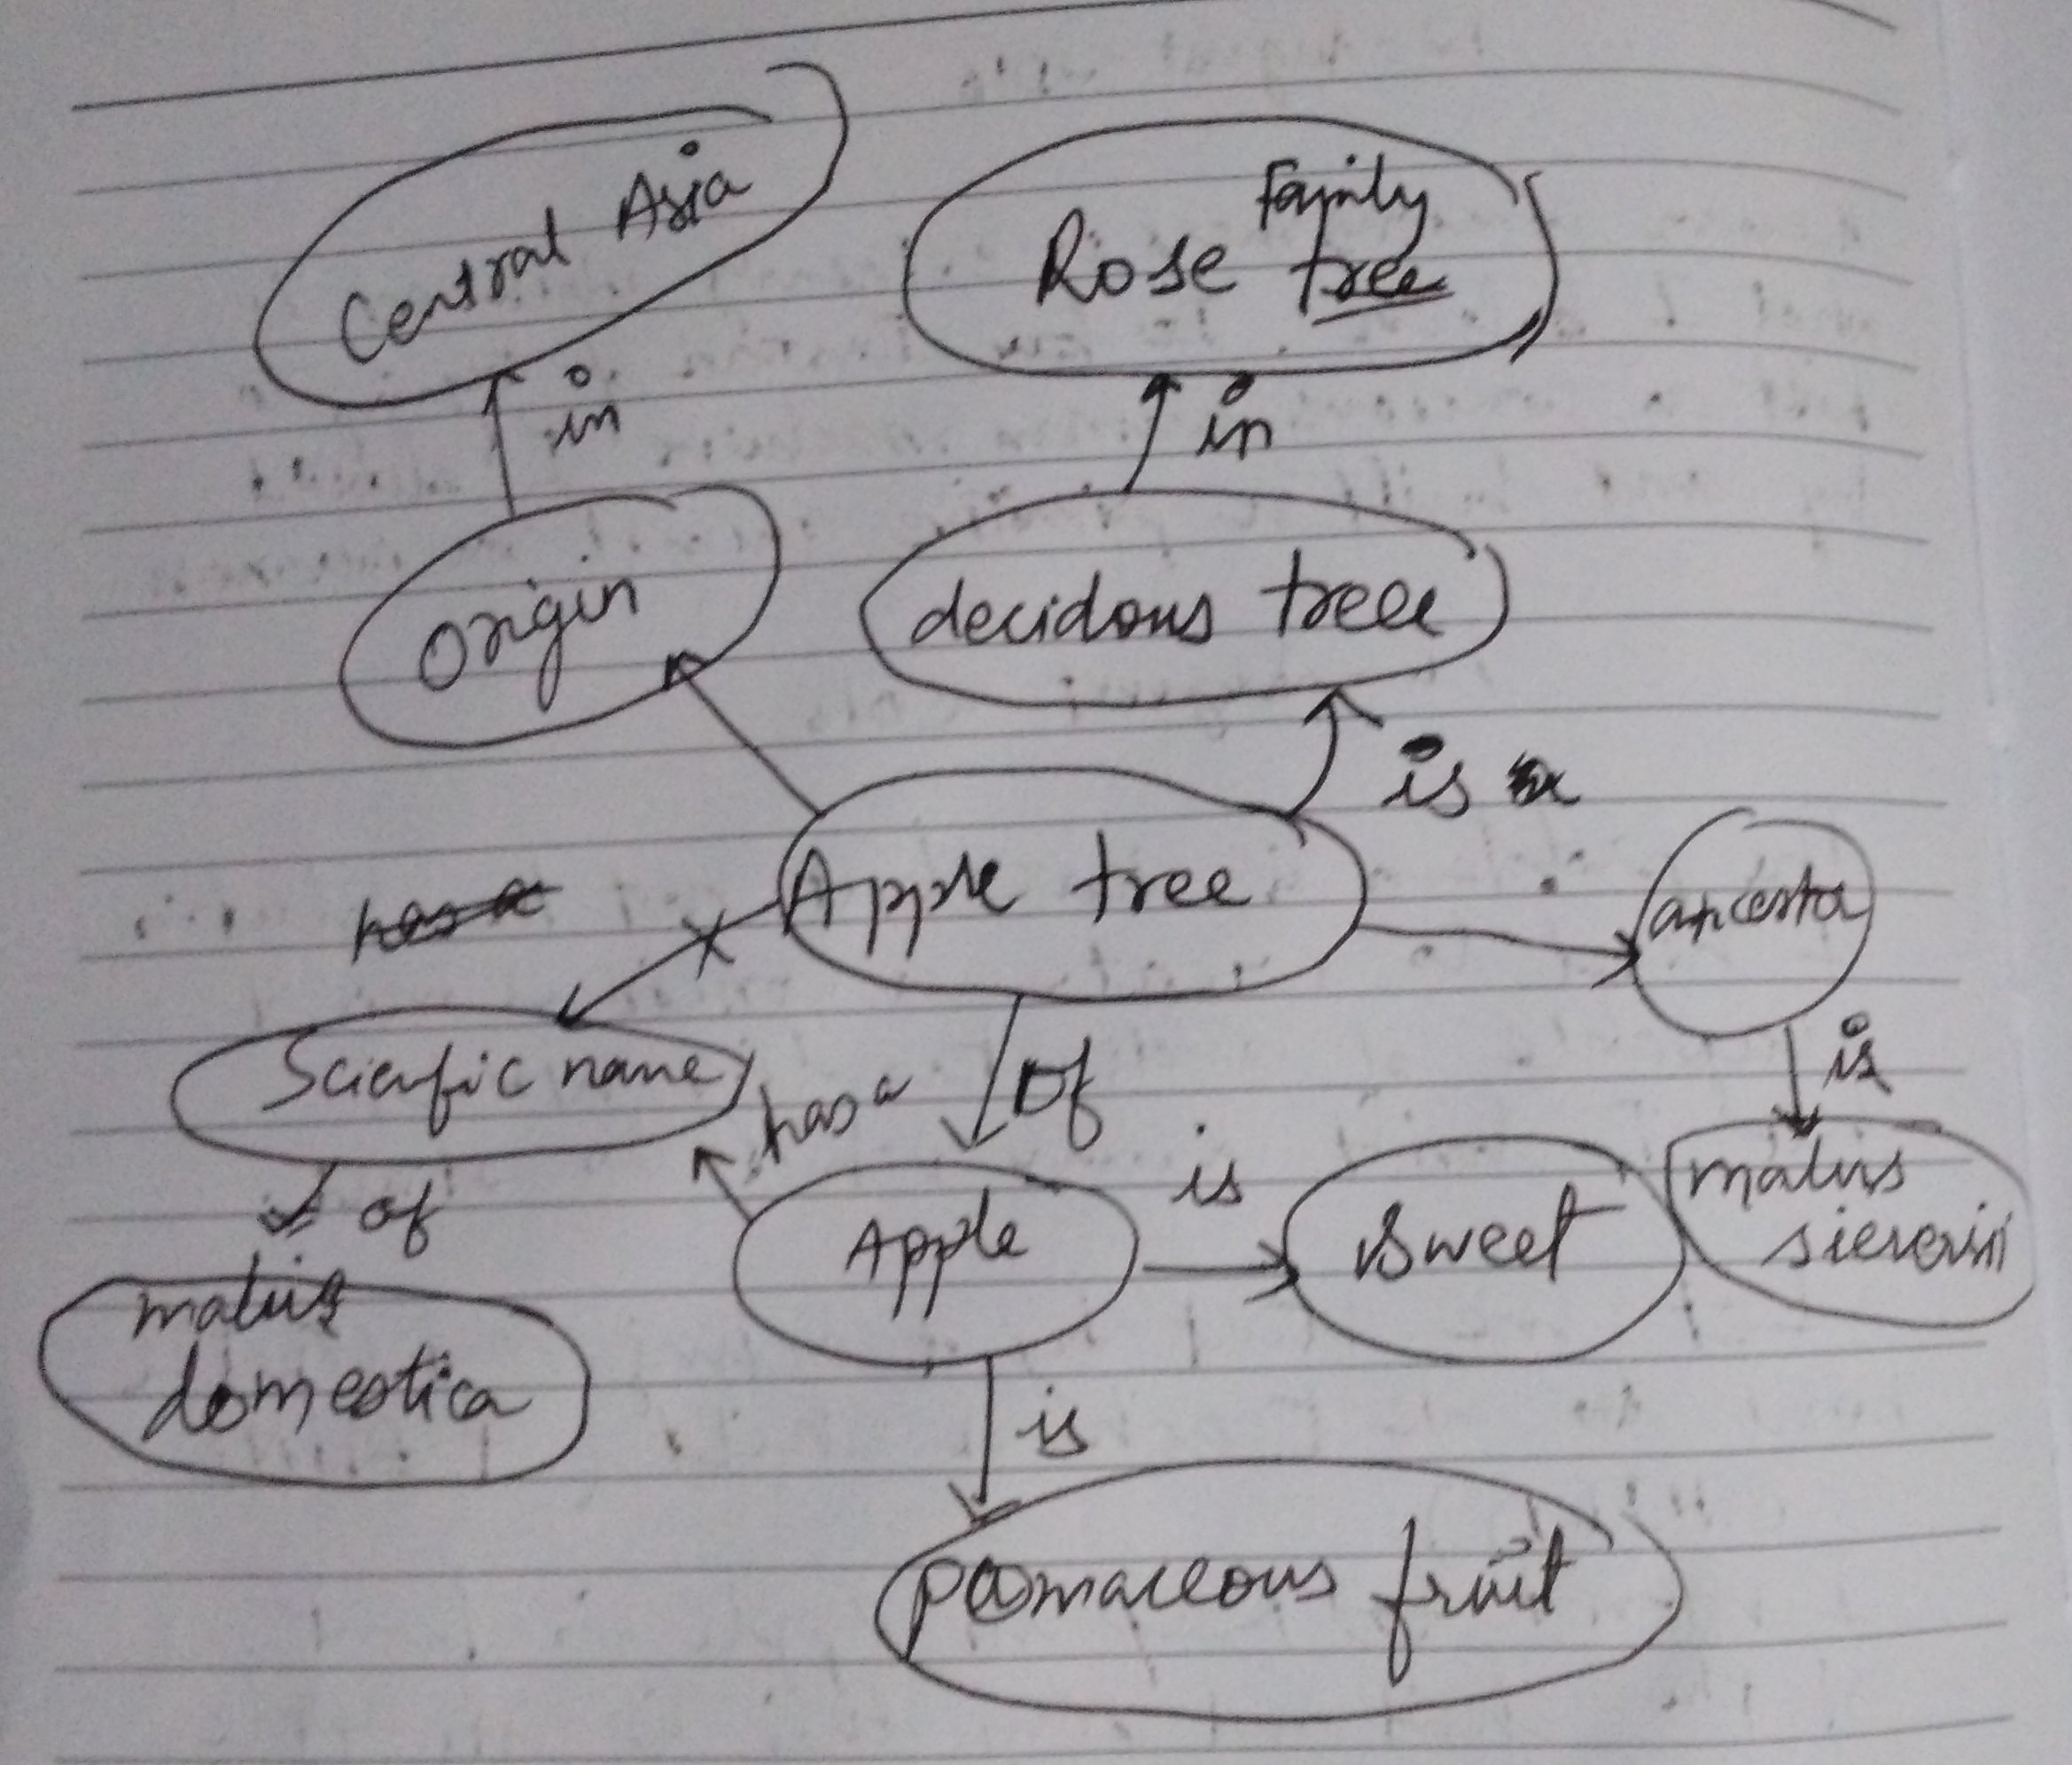 Central Asia
Family
Rose tree
in
in
origin
decidous treee
is a
Apple tree
has a
ancesta
Scienfic name
has a
Of
is
of
Apple
is
sweet
malus
sieversii
malus
domestica
is
pomaceous fruit